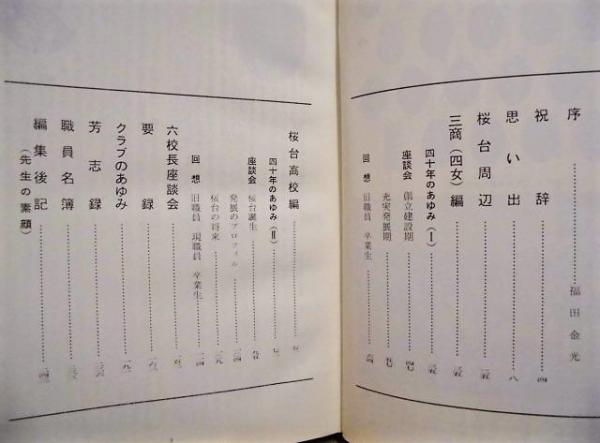 序 福田金光
祝辞 四
思い出 八
桜台周辺
三商(四女)編
四十年のあゆみ(Ⅰ)
座談会 創立建設期
充実発展期
回想 旧職員 卒業生
桜台高校編
四十年のあゆみ(Ⅱ)
座談会 桜台誕生
発展のプロフィル
桜台の将来
回想 旧職員 現職員 卒業生
六校長座談会
要録
クラブのあゆみ
芳志録
職員名簿
編集後記
(先生の素顔)